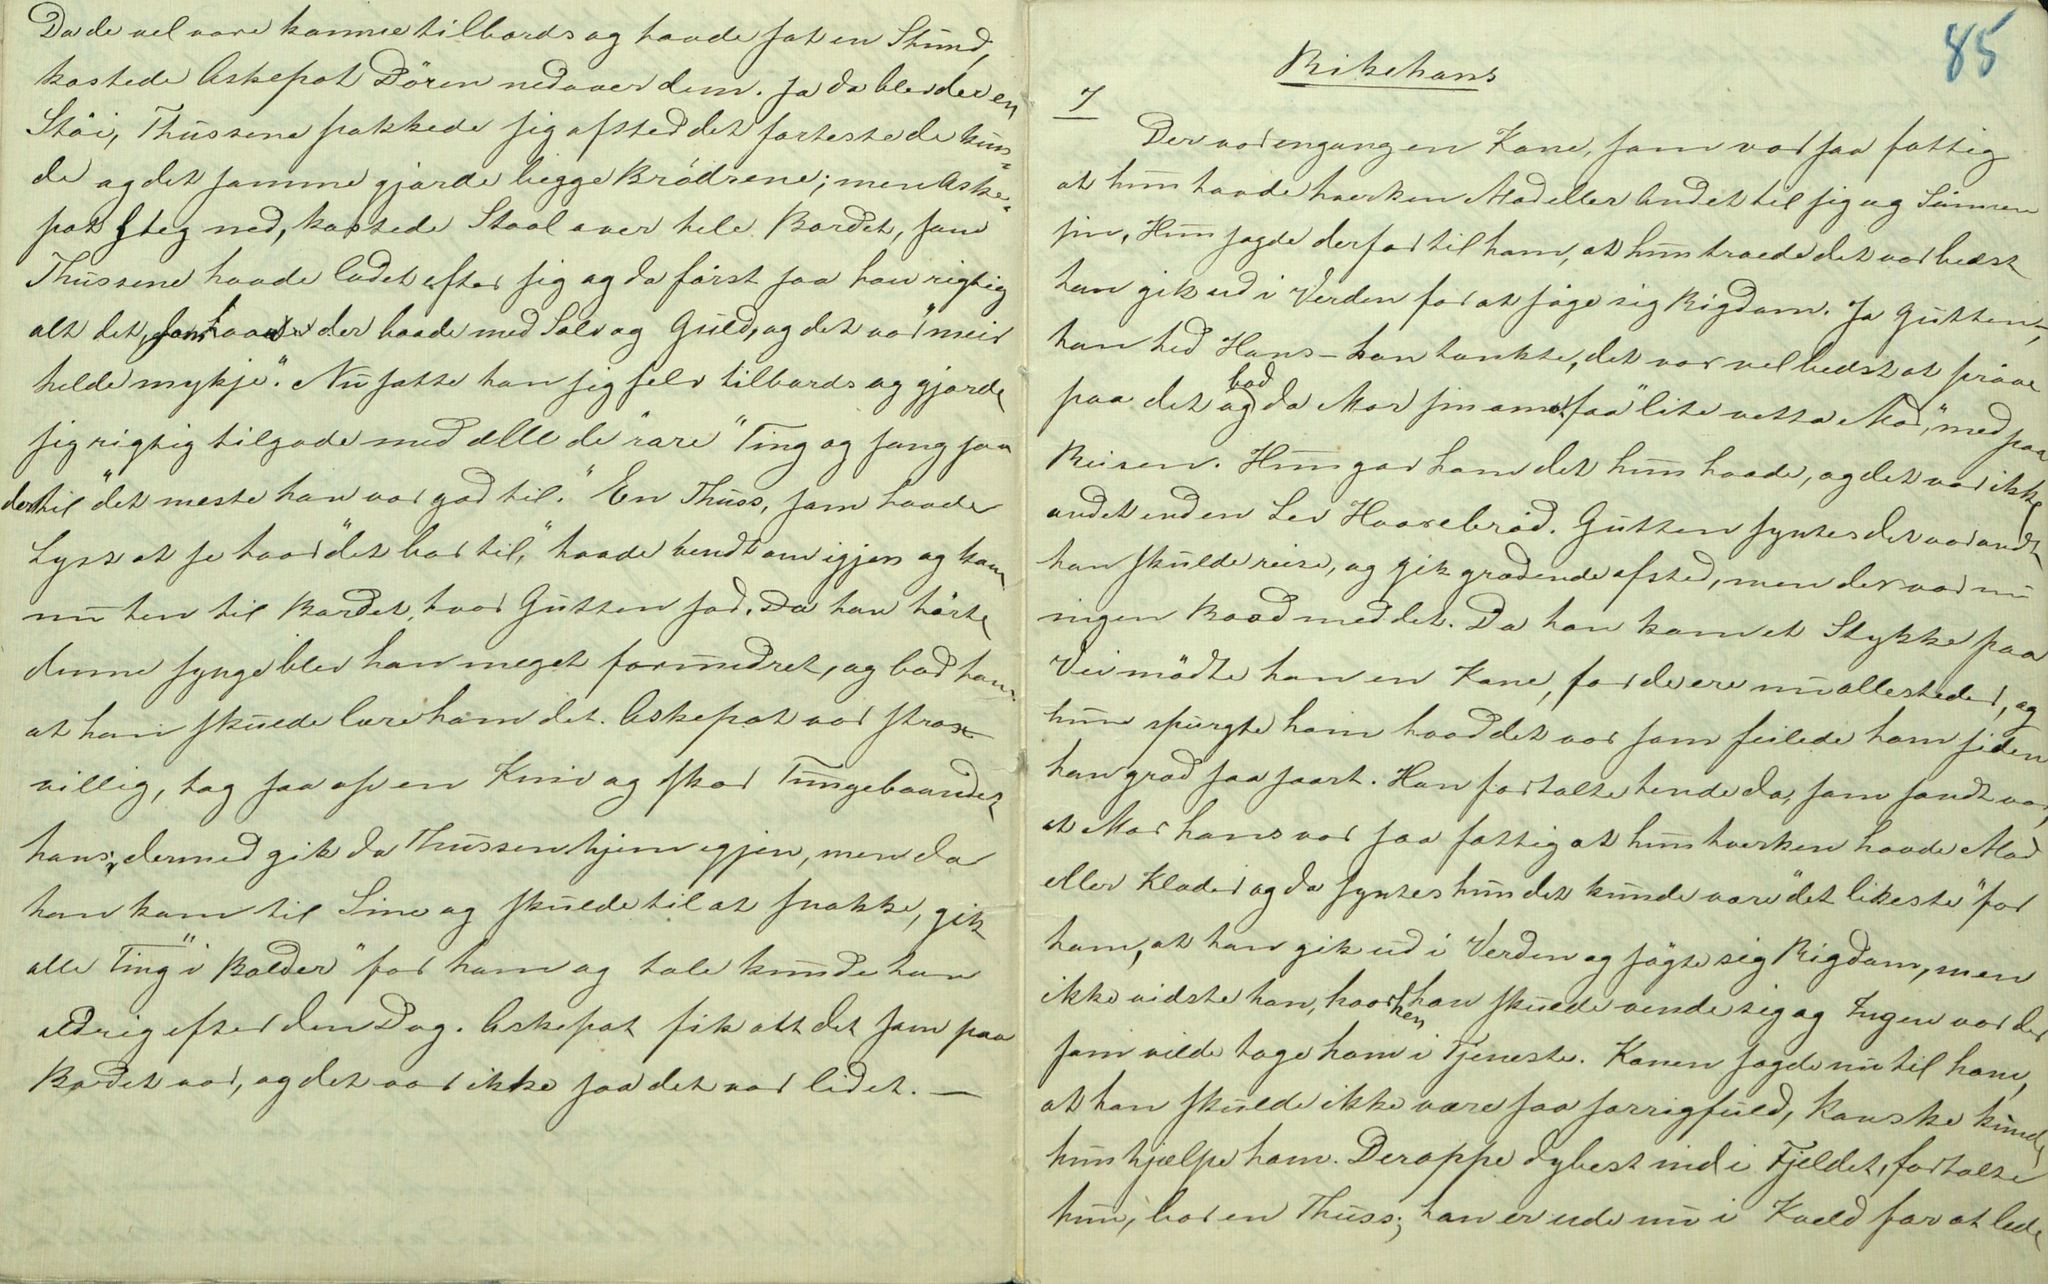 Da de vel vare komne tilbords og havde sat en Stund,
kastede Askepot Dören nedover dem. Ja da blev der en
Stöi, Thussene pakkede sig afsted det forteste de kun-
de og det samme gjorde begge Brödrene; men Aske-
pot steg ned, kastede Staal over hele Bordet, som
Thussene havde ladet efter sig og da först saa han rigtig
alt det, som var der baade med Sölv og Guld, og det var "meir
helde mykje". Nu satte han sig selv tilbords og gjorde
sig rigtig tilgode med alle de "rare" Ting og sang saa
dertil "det meste han var god til." En Thuss, som havde
Lyst at se hvor "det bar til," havde vendt om igjen og kom
nu hen til Bordet, hvor Gutten sad. Da han hörte
denne synge blev han meget forundret, og bad ham
at han skulde lære ham det. Askepot var strax
villig, tog saa op en Kniv og skar Tungebaandet
hans; dermed gik da Thussen hjem igjen, men da
han kom til Sine og skulde til at snakke, gik
alle Ting "i Balder" for ham og tale kunde han
aldrig efter den Dag. Askepot fik alt det som paa
Bordet var, og det var ikke saa det var lidet. —
85
Rikehans
7
Der var engang en Kone, som var saa fattig
at hun havde hverken Mad eller Andet til sig og Sönnen
sin, Hun sagde derfor til ham, at hun troede det var bedst
han gik ud i Verden for at söge sig Rigdom. Ja Gutten,
han hed Hans – han tænkte, det var vel bedst at pröve
paa det og bad da Mor sin om at faa "lite vetta Mad," med paa
Reisen. Hun gav ham det hun havde, og det var ikke
andet end en Lev Havrebröd. Gutten syntes det var ondt
han skulde reise, og gik grædende afsted, men der var nu
ingen Raad med det. Da han kom et Stykke paa
Vei mödte han en Kone, for de ere nu allesteder, og
hun spurgte ham hvad det var som feilede ham siden
han græd saa saart. Han fortalte hende da, som sandt var,
at Mor hans var saa fattig at hun hverken havde Mad
eller Klæder og da syntes hun det kunde være "det likeste" for
ham, at han gik ud i Verden og sögte sig Rigdom, men
ikke vidste han, hvorhen han skulde vende sig og Ingen var der
som vilde tage ham i Tjeneste. Konen sagde nu til ham,
at han skulde ikke være saa sorrigfuld, kanske kunde
hun hjælpe ham. Deroppe dybest ind i Fjeldet, fortalte
hun, bor en Thuss; han er ude nu i Kveld for at lede